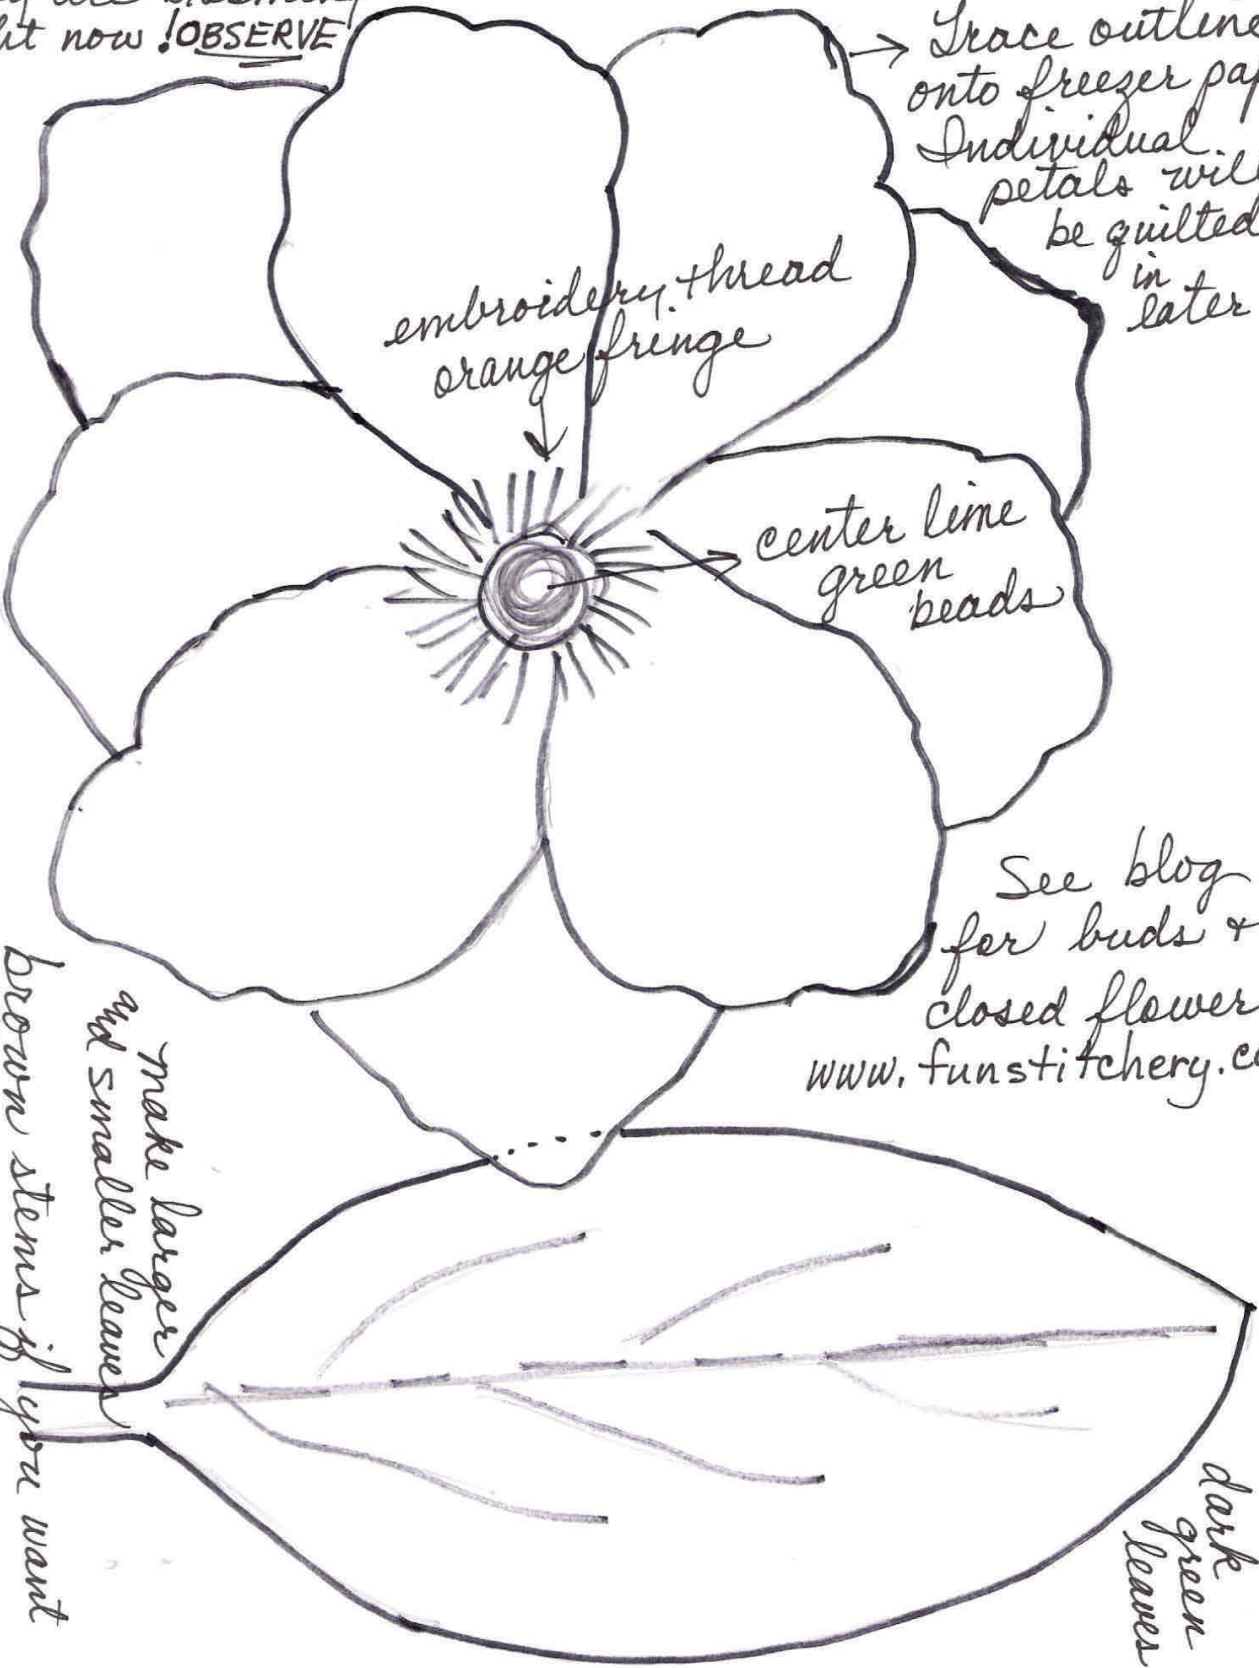 are blooming
now! OBSERVE
Trace outline
onto freezer pap
Individual
petals will
be quilted
in
later
embroidery thread
orange fringe
center lime
green
beads
See blog
for buds +
closed flower
www.funstitchery.co
make larger
and smaller leaves
brown stems if you want
dark
green
leaves